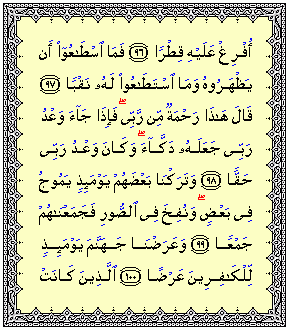 أُفْرِغْ عَلَيْهِ قِطْرًا ۝٩٦ فَمَا ٱسْطَٰعُوٓا۟ أَن
يَظْهَرُوهُ وَمَا ٱسْتَطَٰعُوا۟ لَهُۥ نَقْبًا ۝٩٧
قَالَ هَٰذَا رَحْمَةٌ مِّن رَّبِّى ۖ فَإِذَا جَآءَ وَعْدُ
رَبِّى جَعَلَهُۥ دَكَّآءَ ۖ وَكَانَ وَعْدُ رَبِّى
حَقًّا ۝٩٨ وَتَرَكْنَا بَعْضَهُمْ يَوْمَئِذٍ يَمُوجُ
فِى بَعْضٍ ۖ وَنُفِخَ فِى ٱلصُّورِ فَجَمَعْنَٰهُمْ
جَمْعًا ۝٩٩ وَعَرَضْنَا جَهَنَّمَ يَوْمَئِذٍ
لِّلْكَٰفِرِينَ عَرْضًا ۝١٠٠ ٱلَّذِينَ كَانَتْ